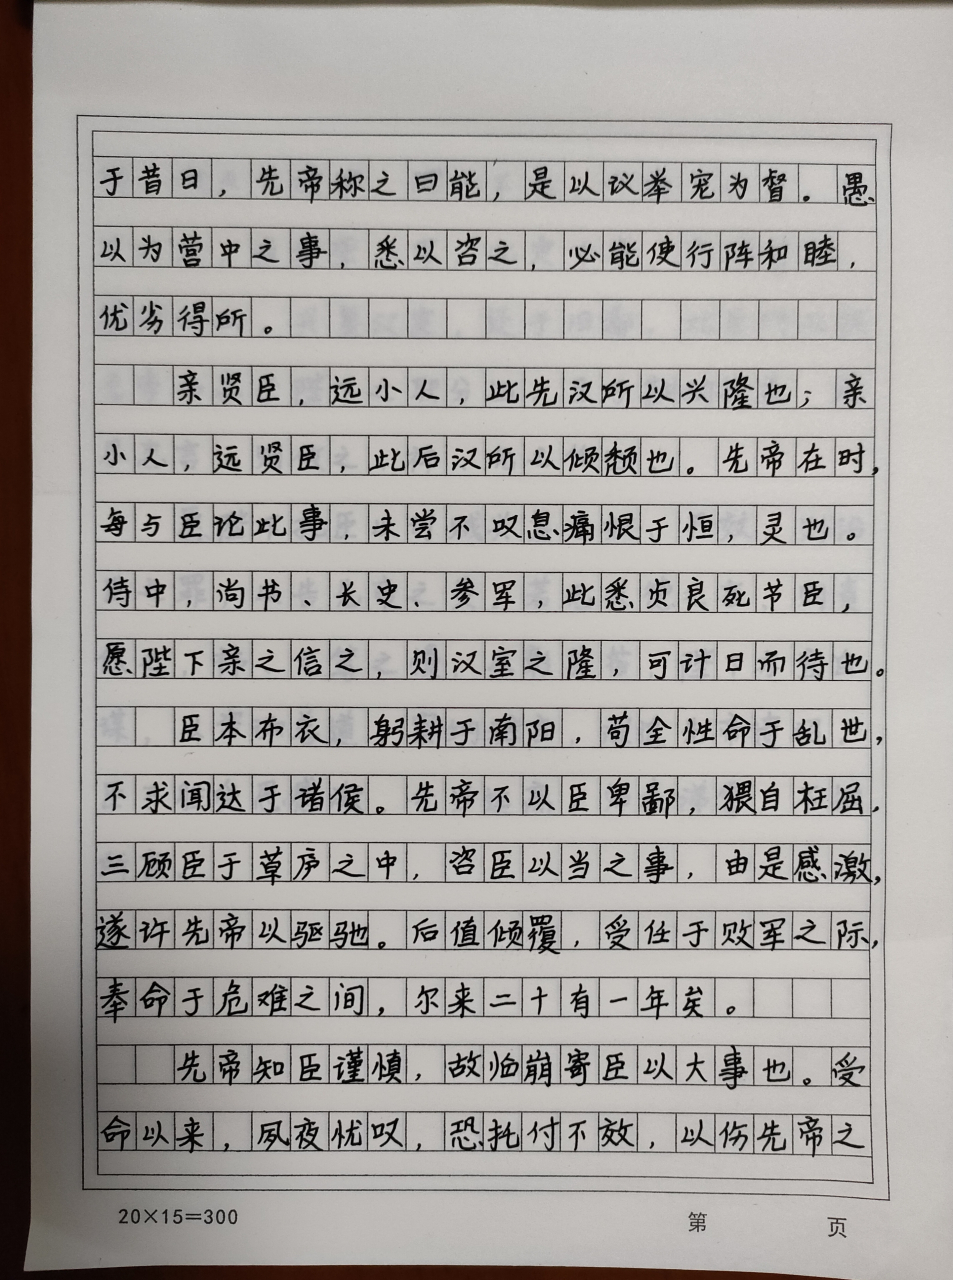 于昔日，先帝称之曰能，是以议举宠为督。愚
以为营中之事，悉以咨之，必能使行阵和睦，
优劣得所。
亲贤臣，远小人，此先汉所以兴隆也；亲
小人，远贤臣，此后汉所以倾颓也。先帝在时，
每与臣论此事，未尝不叹息痛恨于恒，灵也。
侍中，尚书、长史、参军，此悉贞良死节臣，
愿陛下亲之信之，则汉室之隆，可计日而待也。
臣本布衣，躬耕于南阳，苟全性命于乱世，
不求闻达于诸侯。先帝不以臣卑鄙，猥自枉屈，
三顾臣于草庐之中，咨臣以当之事，由是感激，
遂许先帝以驱驰。后值倾覆，受任于败军之际，
奉命于危难之间，尔来二十有一年矣。
先帝知臣谨慎，故临崩寄臣以大事也。受
命以来，夙夜忧叹，恐托付不效，以伤先帝之
20×15=300
第 页